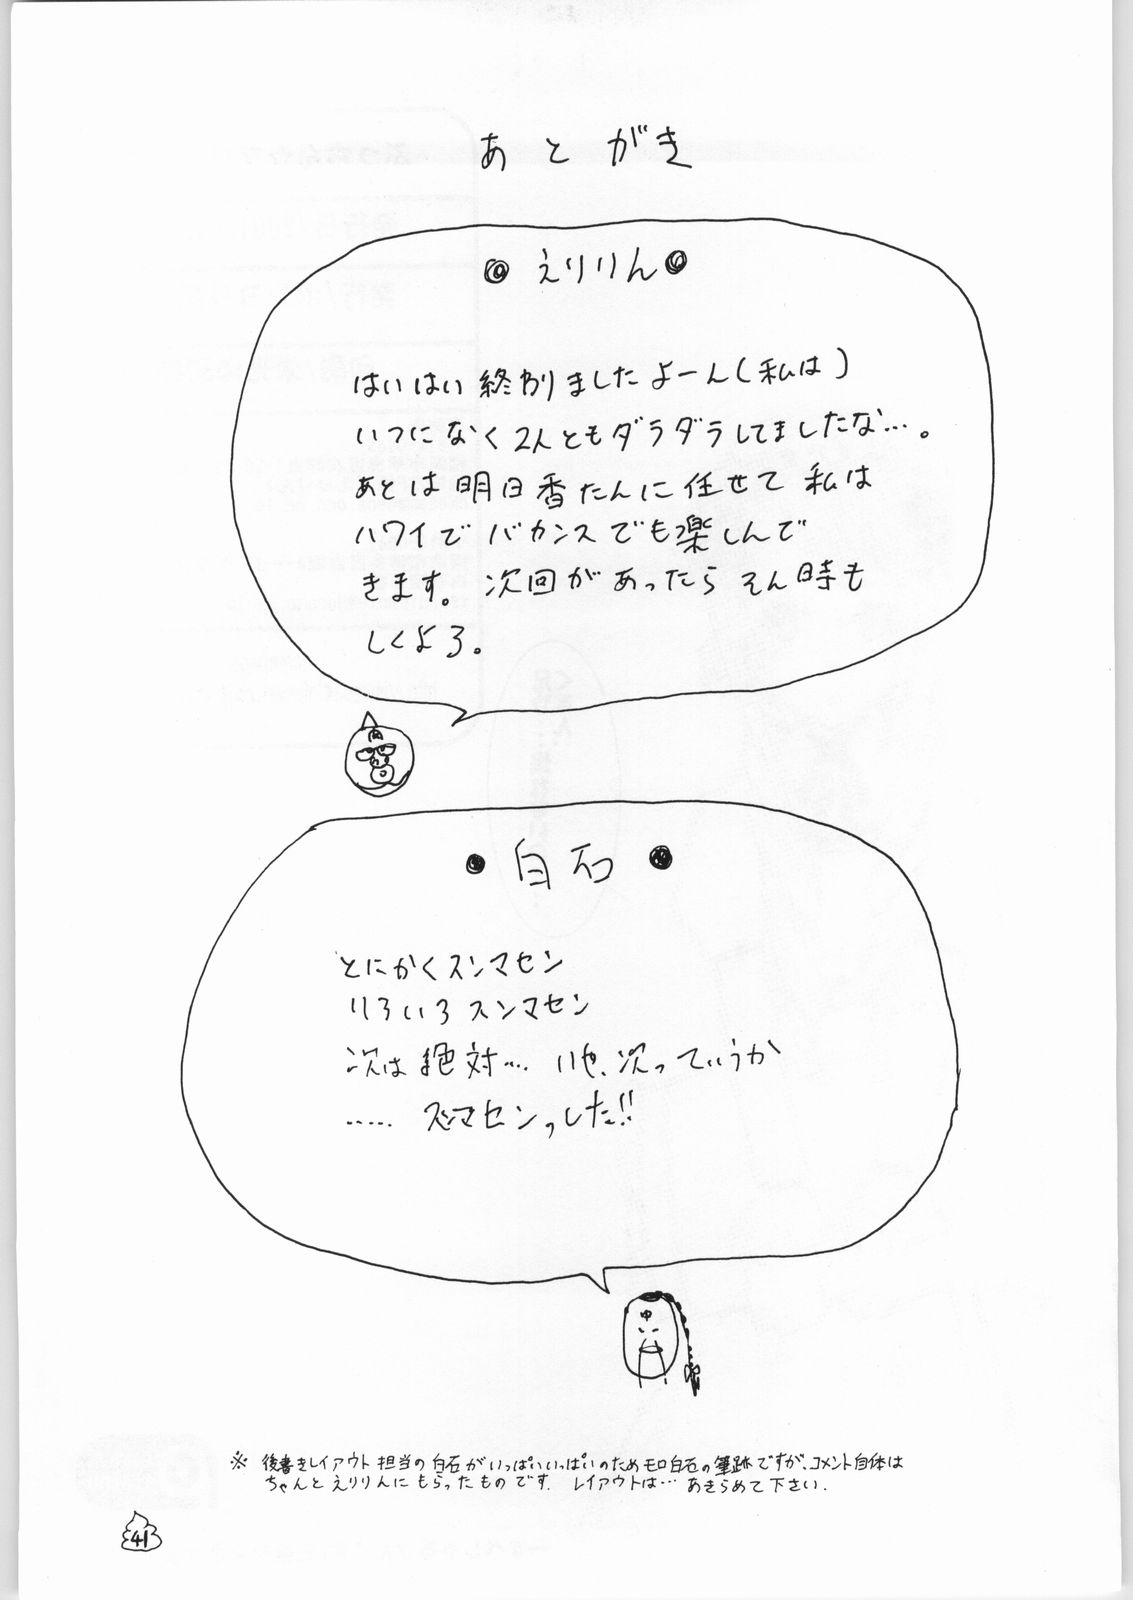 あとがき
えりりん
はいはい終わりましたよーん(私は)
いつになく2人ともダラダラしてましたな…。
あとは明日香たんに任せて私は
ハワイでバカンスでも楽しんで
きます。次回があったらそん時も
しくよろ。
肉
白石
とにかくスンマセン
いろいろスンマセン
次は絶対… いや、次っていうか
…… スンマセンっした!!
中
※ 後書きレイアウト担当の白石がいっぱいいっぱいのためモロ白石の筆跡ですが、コメント自体は
ちゃんとえりりんにもらったものです. レイアウトは… あきらめて下さい.
41